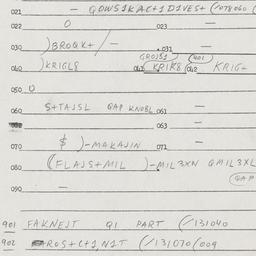 021 — QOWS1KAC+1D1VES+ (/078060
022 O 023 —
030 )BROQK+/— 031
040 )KRIGL8 041 GROJS1 KRIK8 042 (401) KRIG-
050 O
060 S+TAJSL QAP KNOBL 061 —
063 —
070 $ )-MAKAJIN 071 —
080 (FLAJS+MIL )-MIL3XN QMIL3XL
(QAP
090 —
901 FAKNEJT Q1 PART (/131040
902 ROS+C+1,N1T (/131070/009